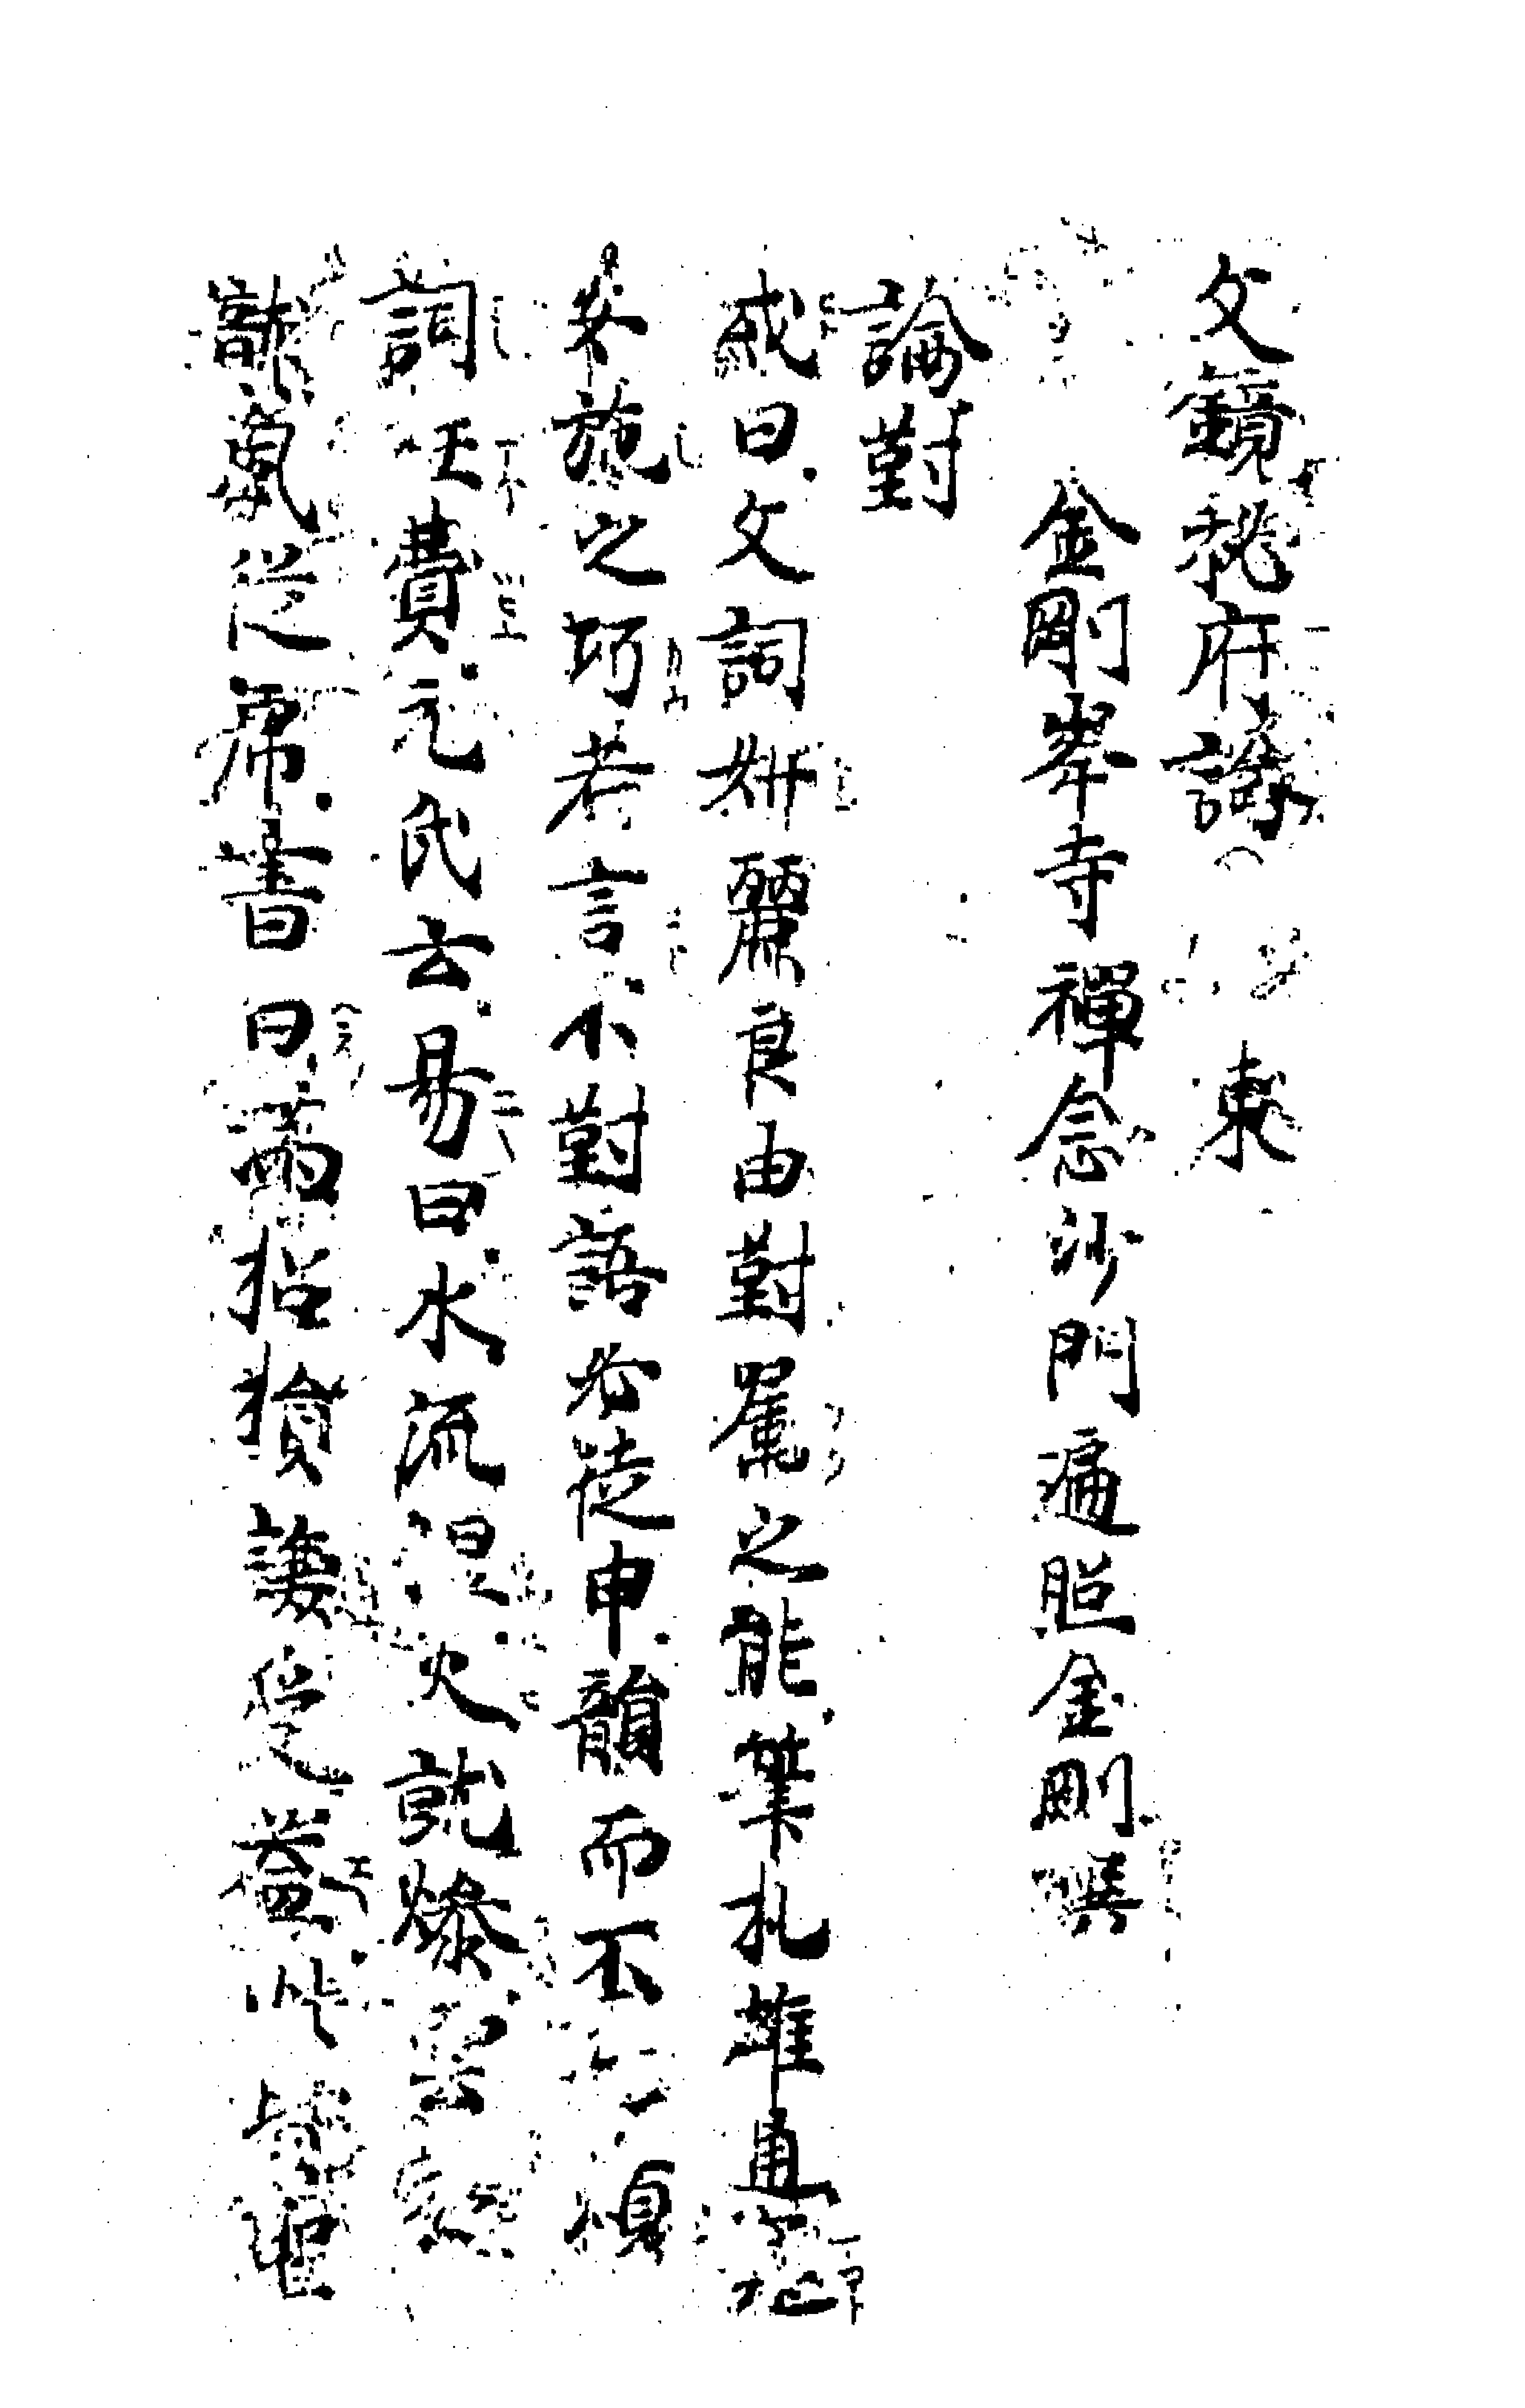 文鏡秘府論 東
金剛峯寺禪念沙門遍照金剛撰
論對
或曰文詞姸麗良由對属之能筆札雄通
安施之巧若言不對語必徒申韻而不煩
詞任費元氏云易曰水流濕火就燥雲
龍風従席書曰滿招損謙受益此皆